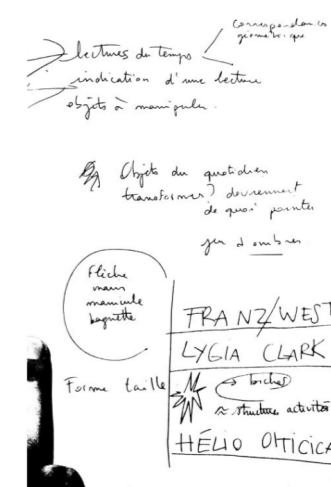 correspondances
géométrique
lectures du temps
indication d'une lecture
objets à manipuler.
Objets du quotidien
transformer? deviennent
de quoi pointer
jeu d'ombres
Flèche
main
manicule
baguette
Forme taille
FRANZ WEST
LYGIA CLARK
→ torches
≈ structures activités
HÉLIO OITICICA